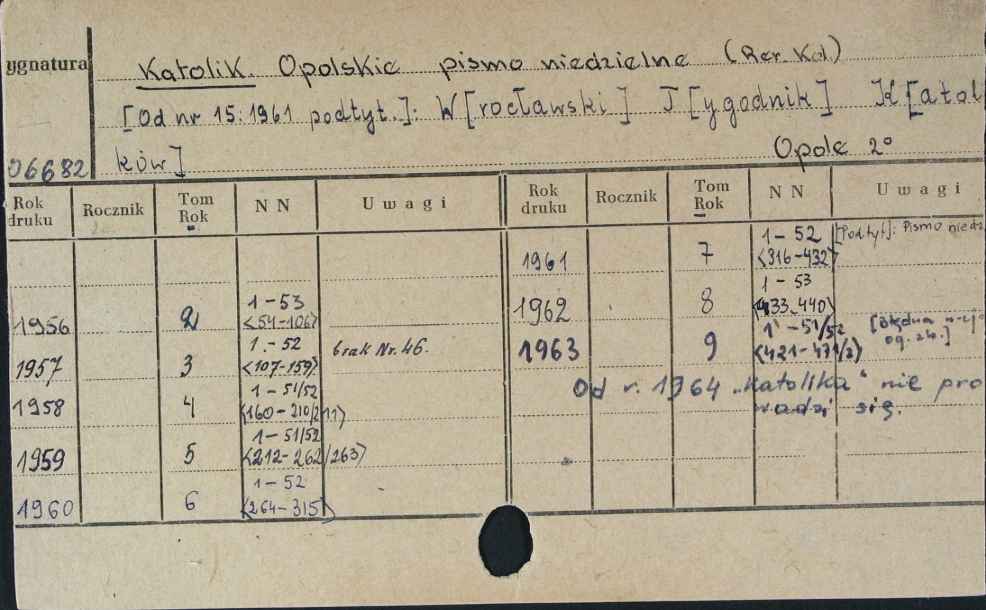 ygnatura
Katolik. Opolskie pismo niedzielne (Rer. Kol)
[Od nr 15:1961 podtyt.]: W[rocławski] T[ygodnik] K[atol
ków]
Opole 2°
06682
Rok druku Rocznik Tom Rok NN Uwagi
1956 2 1-53 <54-106>
1957 3 1.-52 <107-159> brak Nr. 46.
1958 4 1-51/52 <160-210/211>
1959 5 1-51/52 <212-262/263>
1960 6 1-52 <264-315>
Rok druku Rocznik Tom Rok NN Uwagi
1961 7 1-52 <316-432> [Podtyt]: Pismo niedz
1962 8 1-53 <433-440>
1963 9 1-51/52 <421-471/2> [błędna n-cja
og. zb.]
Od r. 1964 „Katolika" nie pro
wadzi się.